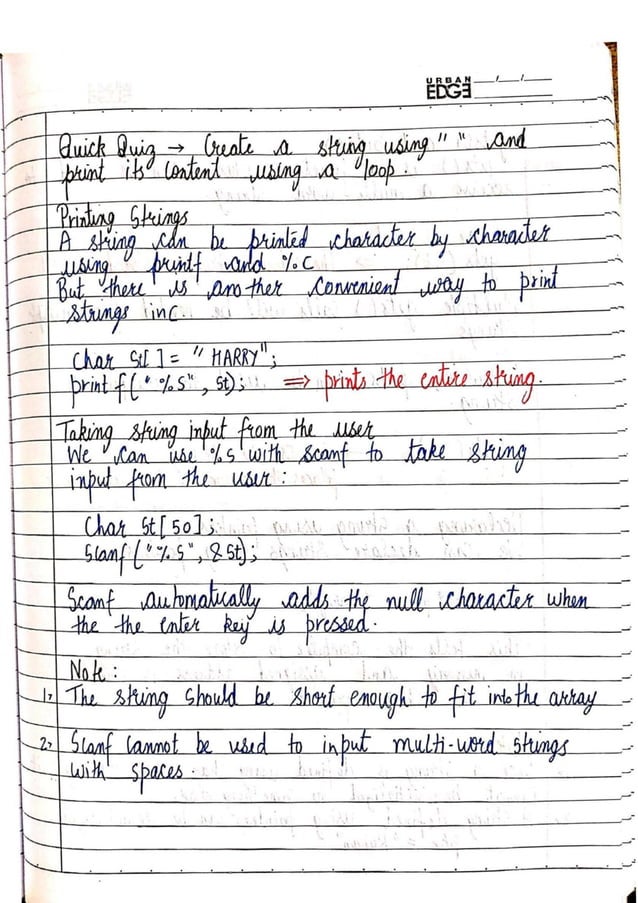 URBAN
EDGE
Quick Quiz → Create a string using " " and
print its content using a loop.
Printing Strings
A string can be printed character by character
using printf and %c
But there is another convenient way to print
strings in C.
Char St[ ] = "HARRY";
printf("%s", St); ⇒ prints the entire string.
Taking string input from the user
We can use %s with scanf to take string
input from the user :
Char St[50];
Scanf("%s", &St);
Scanf automatically adds the null character when
the the enter key is pressed.
Note :
1> The string should be short enough to fit into the array
2> Scanf cannot be used to input multi-word strings
with spaces.